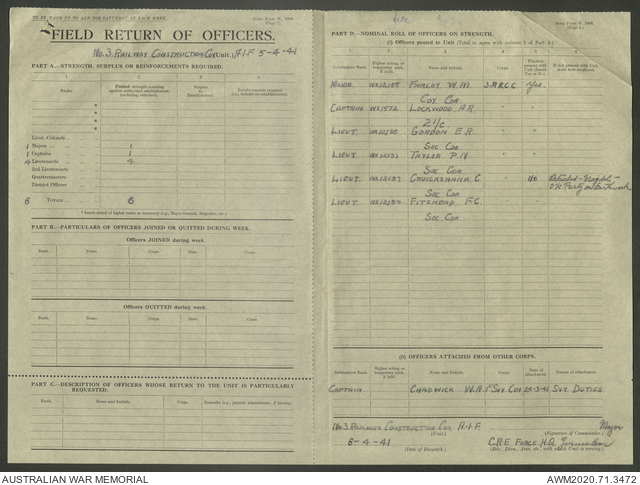 TO BE MADE UP TO AND FOR SATURDAY IN EACH WEEK.
Army Form W. 3008.
(Page 1).
FIELD RETURN OF OFFICERS.
No. 3 RAILWAY CONSTRUCTION COY (Unit.) A.I.F. 5-4-41
PART A.—STRENGTH, SURPLUS OR REINFORCEMENTS REQUIRED.
1 2 3 4
Ranks.
Posted strength counting against authorized establishment (excluding attached).
Surplus to Establishment.
Reinforcements required
Lieut.-Colonels
1 Majors 1
1 Captains 1
4 Lieutenants 4
2nd Lieutenants
Quartermasters
District Officers
6 TOTALS 6
* Insert detail of higher ranks as necessary (e.g., Major-General, Brigadier, etc.)
PART B.—PARTICULARS OF OFFICERS JOINED OR QUITTED DURING WEEK.
Officers JOINED during week.
Rank. Name. Corps. Date. Cause.
Officers QUITTED during week.
Rank. Name. Corps. Date. Cause.
PART C.—DESCRIPTION OF OFFICERS WHOSE RETURN TO THE UNIT IS PARTICULARLY REQUESTED.
Rank. Name and Initials. Corps. Remarks (e.g., present whereabouts, if known).
Army Form W. 3008.
PART D.—NOMINAL ROLL OF OFFICERS ON STRENGTH.
(i) Officers posted to Unit (Total to agree with column 2 of Part A.)
1 2 3 4 5 6
Substantive Rank. Higher acting or temporary rank, if held. Name and Initials. Corps. Whether present with Unit (Insert Yes or No). If not present with Unit, state how employed.
MAJOR FARLEY W.M. Yes.
COY COR
CAPTAIN LOCKWOOD A.R. " "
2I/C
LIEUT GORDON E.R. " "
SEC COR
LIEUT TAYLOR P.H. " "
SEC COR
LIEUT CRUICKSHANK C. " NO Detached
O/C Party
SEC COR
LIEUT F.C. " "
SEC COR
(ii) OFFICERS ATTACHED FROM OTHER CORPS.
Substantive Rank. Higher acting or temporary rank, if held. Name and Initials. Corps. Date of attachment. Nature of attachment.
CAPTAIN CHADWICK W.A. 1st SVY COY 23-3-41 SVY DUTIES
No 3 RAILWAY CONSTRUCTION COY A.I.F.
(Unit.)
Major
(Signature of Commander.)
5-4-41
(Date of Despatch.)
C.R.E. FORCE H.Q. Jerusalem
(Bde., Divn., Area, etc., with which Unit is serving.)
AUSTRALIAN WAR MEMORIAL
AWM2020.71.3472